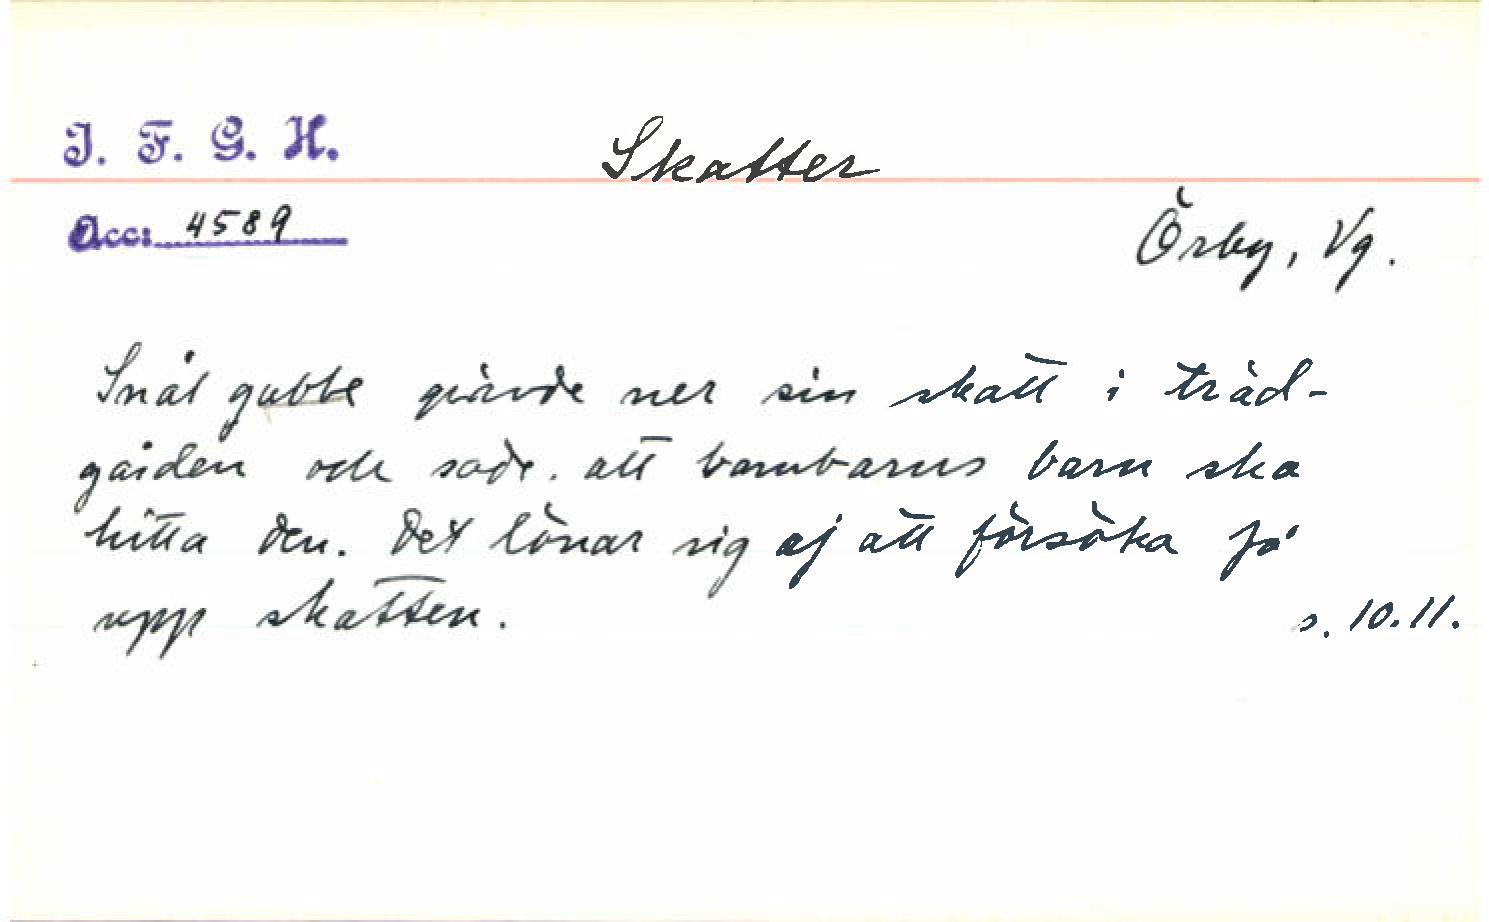 I. F. G. H.
Skatter
Acc: 4589
Örby, Vg.
Snål gubbe grävde ner sin skatt i träd-
gården och sade. att barnbarns barn ska
hitta den. Det lönar sig ej att försöka få
upp skatten.
s. 10.11.